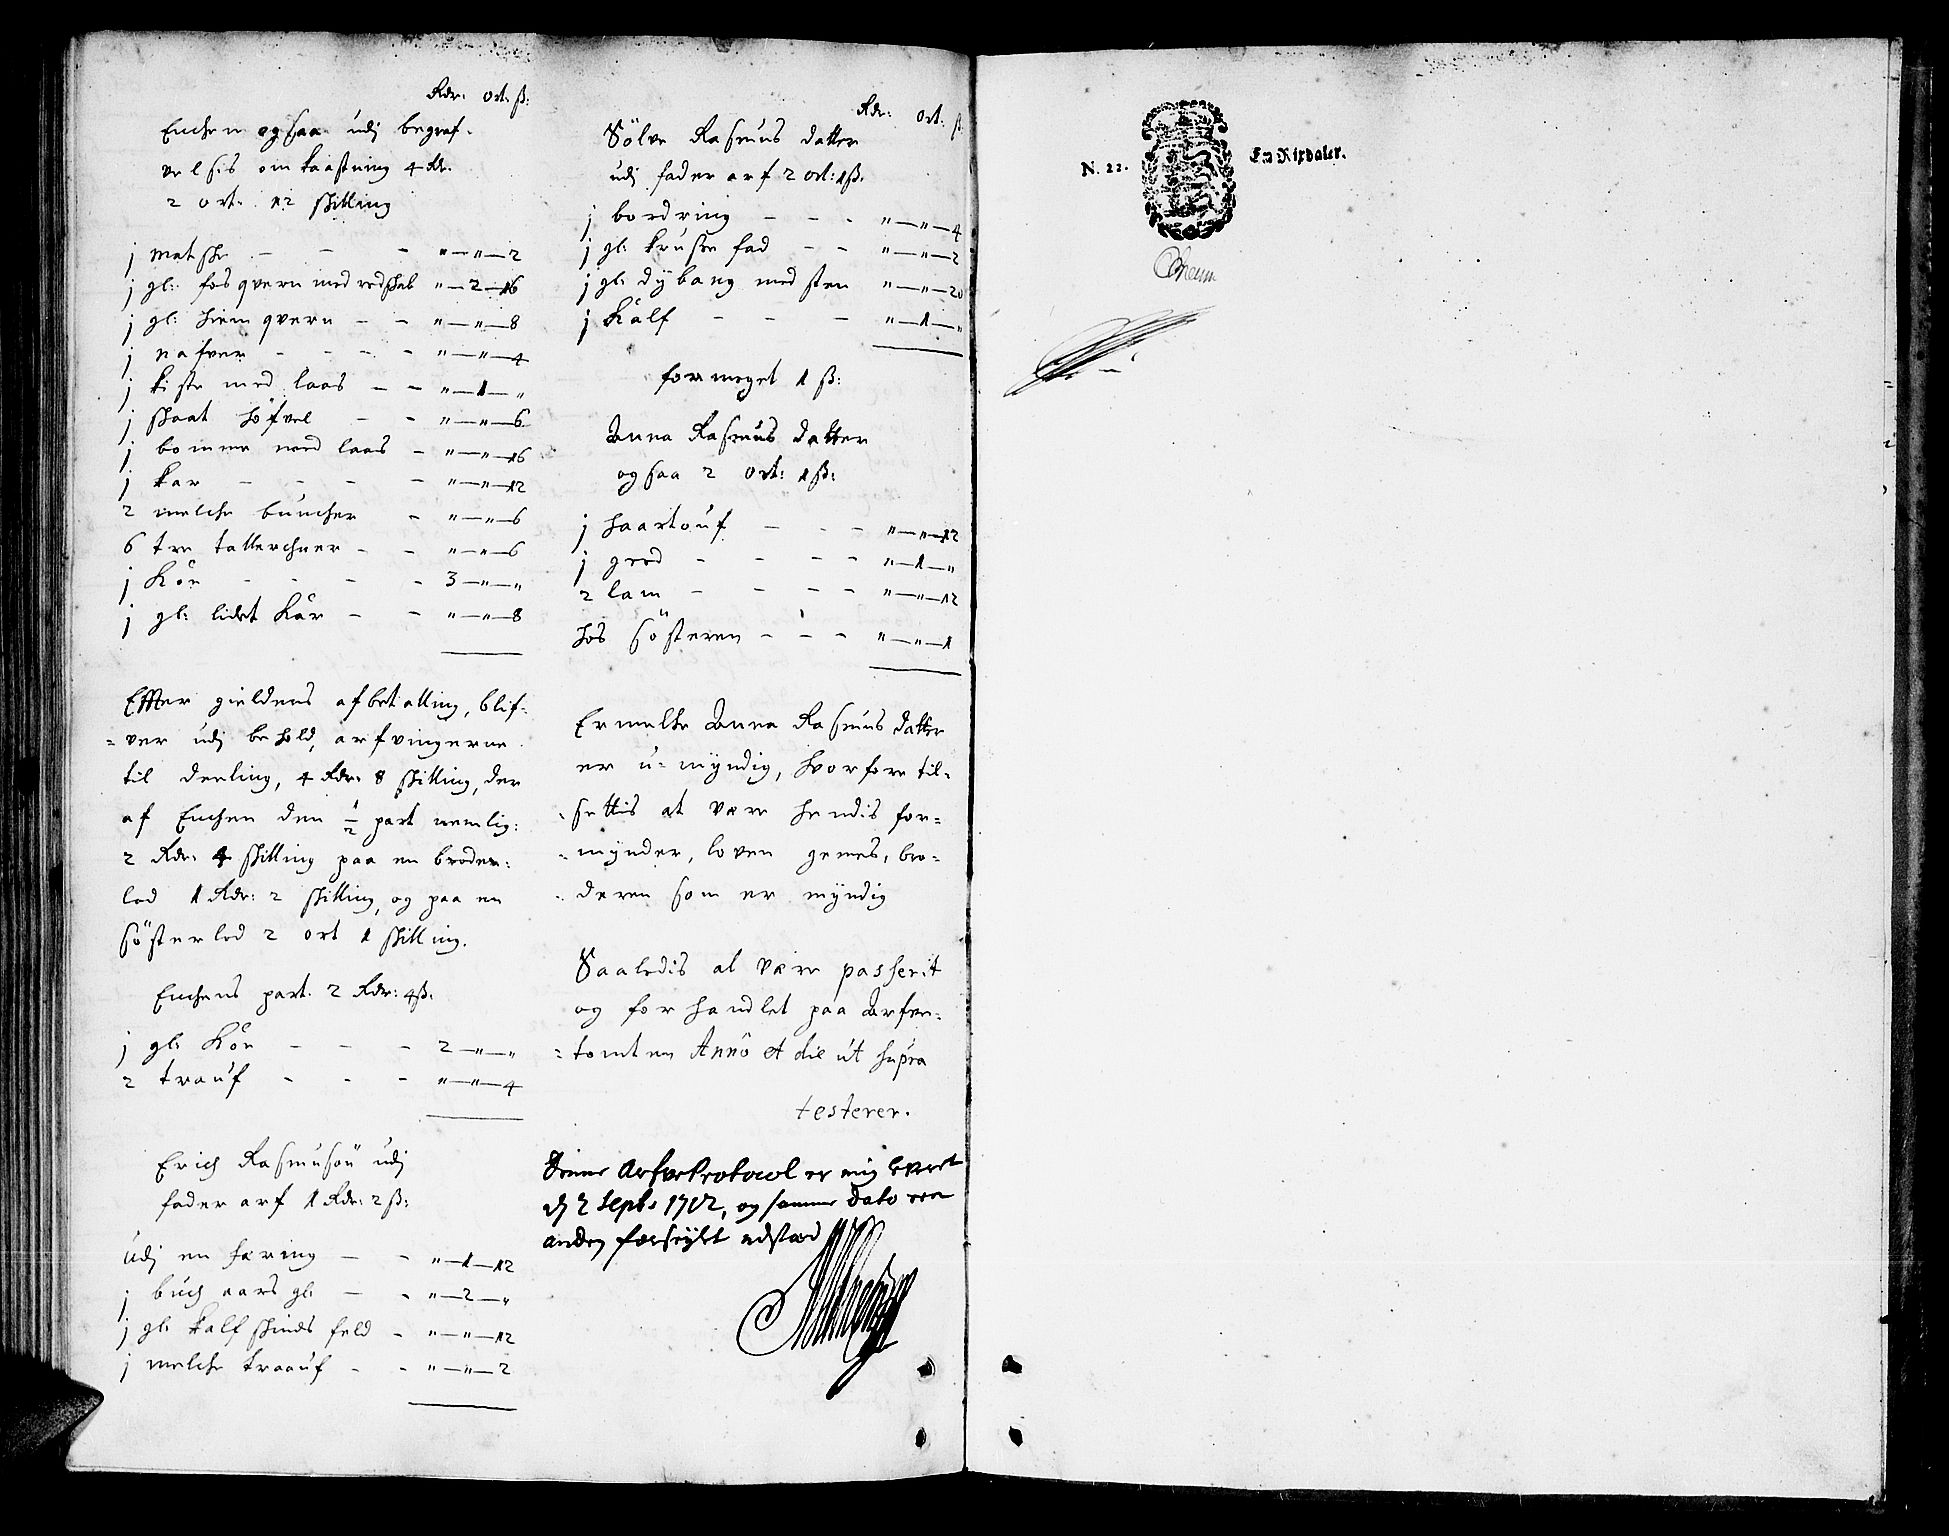 Rdr: ort: ß:
Enchen ogsaa udj begraf-
velsis omkaastning 4 Rdr.
2 ort: 12 skilling
j matske - - - "—"—2
j gl: fosqvern med redskab "—2—16
j gl: hiemqvern - - "—"—8
j nafver - - - - "—"—4
j kiste med laas - - "—1—"
j skaat höfvel - - "—"—6
j bomme med laas - "—"—16
j kar - - - - "—"—12
2 melche buncher - "—"—6
6 tre tallerchner - - "—"—6
j Kör - - - - 3—"—"
j gl: lidet Kar - - "—"—8
Effter gieldens afbetalling, blif-
=ver udj behold, arfvingerne
til deeling, 4 Rdr: 8 skilling, der
af Enchen den 1/2 part nemlig:
2 Rdr: 4 skilling paa en broder:
lod 1 Rdr: 2 skilling, og paa en
söster lod 2 ort 1 skilling.
Enchens part. 2 Rdr: 4 ß:
j gl: Kör - - - 2—"—"
2 trauf - - - "—"—4
Erich Rasmusön udj
fader arf 1 Rdr: 2 ß:
Udj en færing - - "—1—12
j buch aars gl: - - "—2—"
j gl: kalfskinds feld - "—"—12
j melche traauf - - "—"—2
Rdr: ort: ß
Sölve Rasmus datter
udj fader arf 2 ort: 1 ß.
j bordring - - - "—"—4
j gl: kruske fad - - "—"—2
j gl: dybang med sten "—"—20
j Kalf - - - "—1—"
for meget 1 ß:
Anna Rasmus datter
ogsaa 2 ort: 1 ß:
j haartouf - - - "—"—12
j gred - - - - "—1—"
2 lam - - - - "—"—12
hos Södsteren - - - "—"—1
Ermelte Anna Rasmus datter
er u-myndig, hvorfore til-
-settis at være hendis for=
=mynder, loven gemes, bro-
-deren som er myndig
Saaledis at være passerit
og forhandlet paa Arfve-
=tomten Anno et die ut supra
testerer.
Denne Arfve Protocol er mig levert
d 2 Septr 1702, og samme dato een
anden forseiglet udstæd
N. 22.
En Rixdaler.